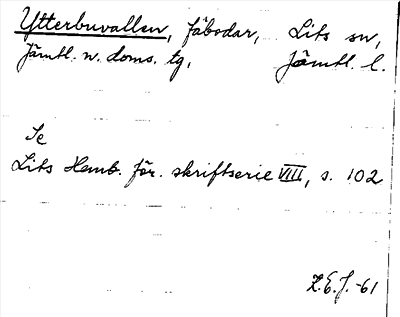 Ytterbuvallen, fäbodar, Lits sn,
Jämtl. n. doms. tg, Jämtl. l.
Se
Lits Hemb. för. skriftserie VIII, s. 102
Z.E.J. -61